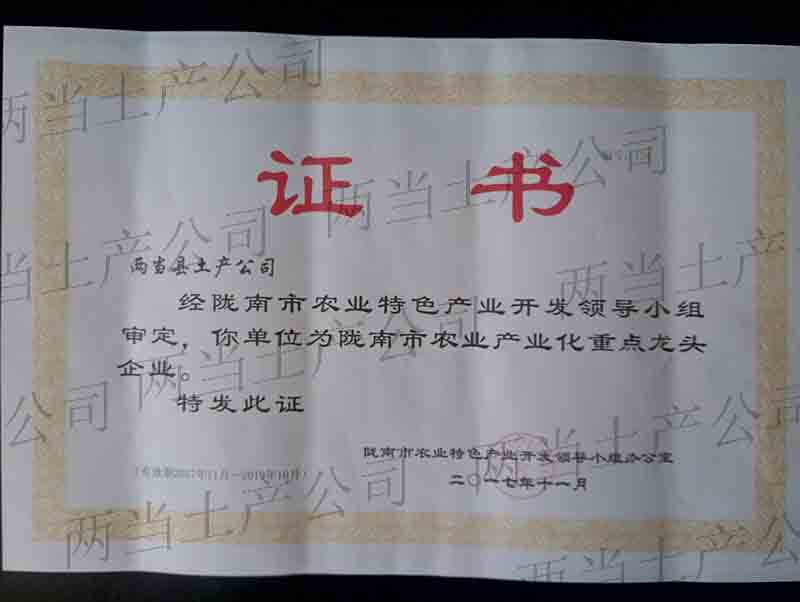 证 书
两当县土产公司
经陇南市农业特色产业开发领导小组
审定，你单位为陇南市农业产业化重点龙头
企业。
特发此证
陇南市农业特色产业开发领导小组办公室
（有效期2017年11月－2019年10月）
二〇一七年十一月
两当土产公司
两当土产公司
当土产公司
两当土产
两当土产公司
公司
两当土产公司
两当土产公司